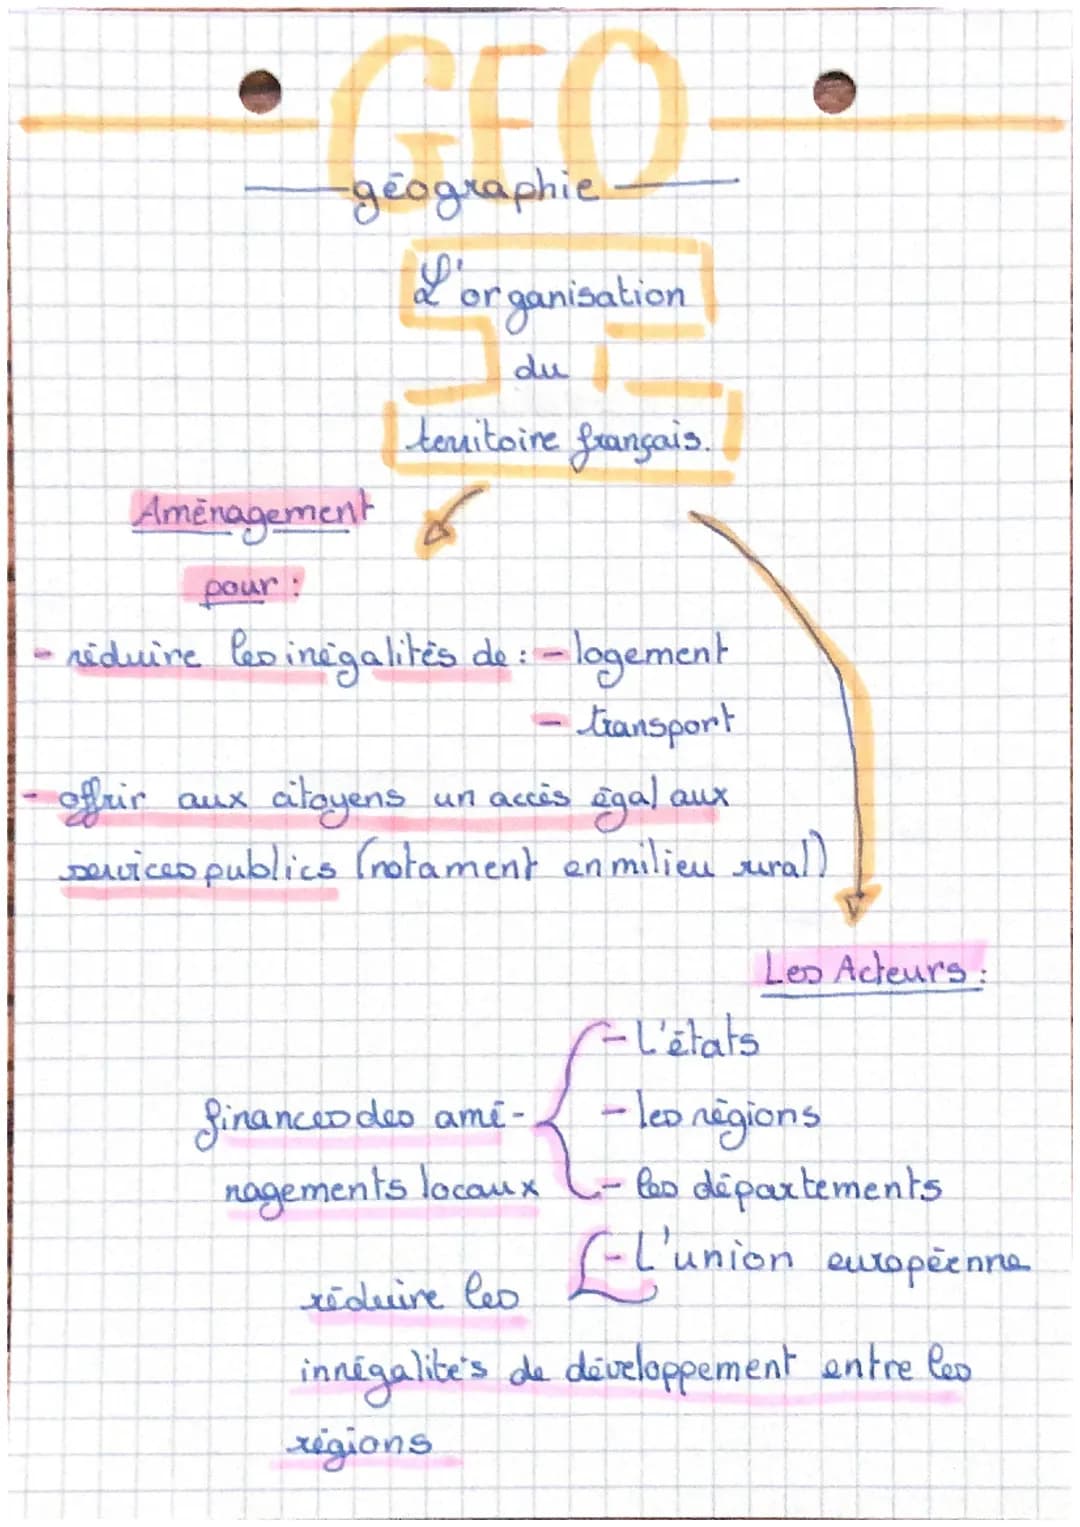 GEO
géographie
L'organisation
du
territoire français.
Aménagement
pour :
- réduire les inégalités de : - logement
- transport
- offrir aux citoyens un accès égal aux
services publics (notament en milieu rural)
Les Acteurs :
- L'états
finances des amé- - les régions
nagements locaux - les départements
- L'union européenne
réduire les
innégalités de développement entre les
régions